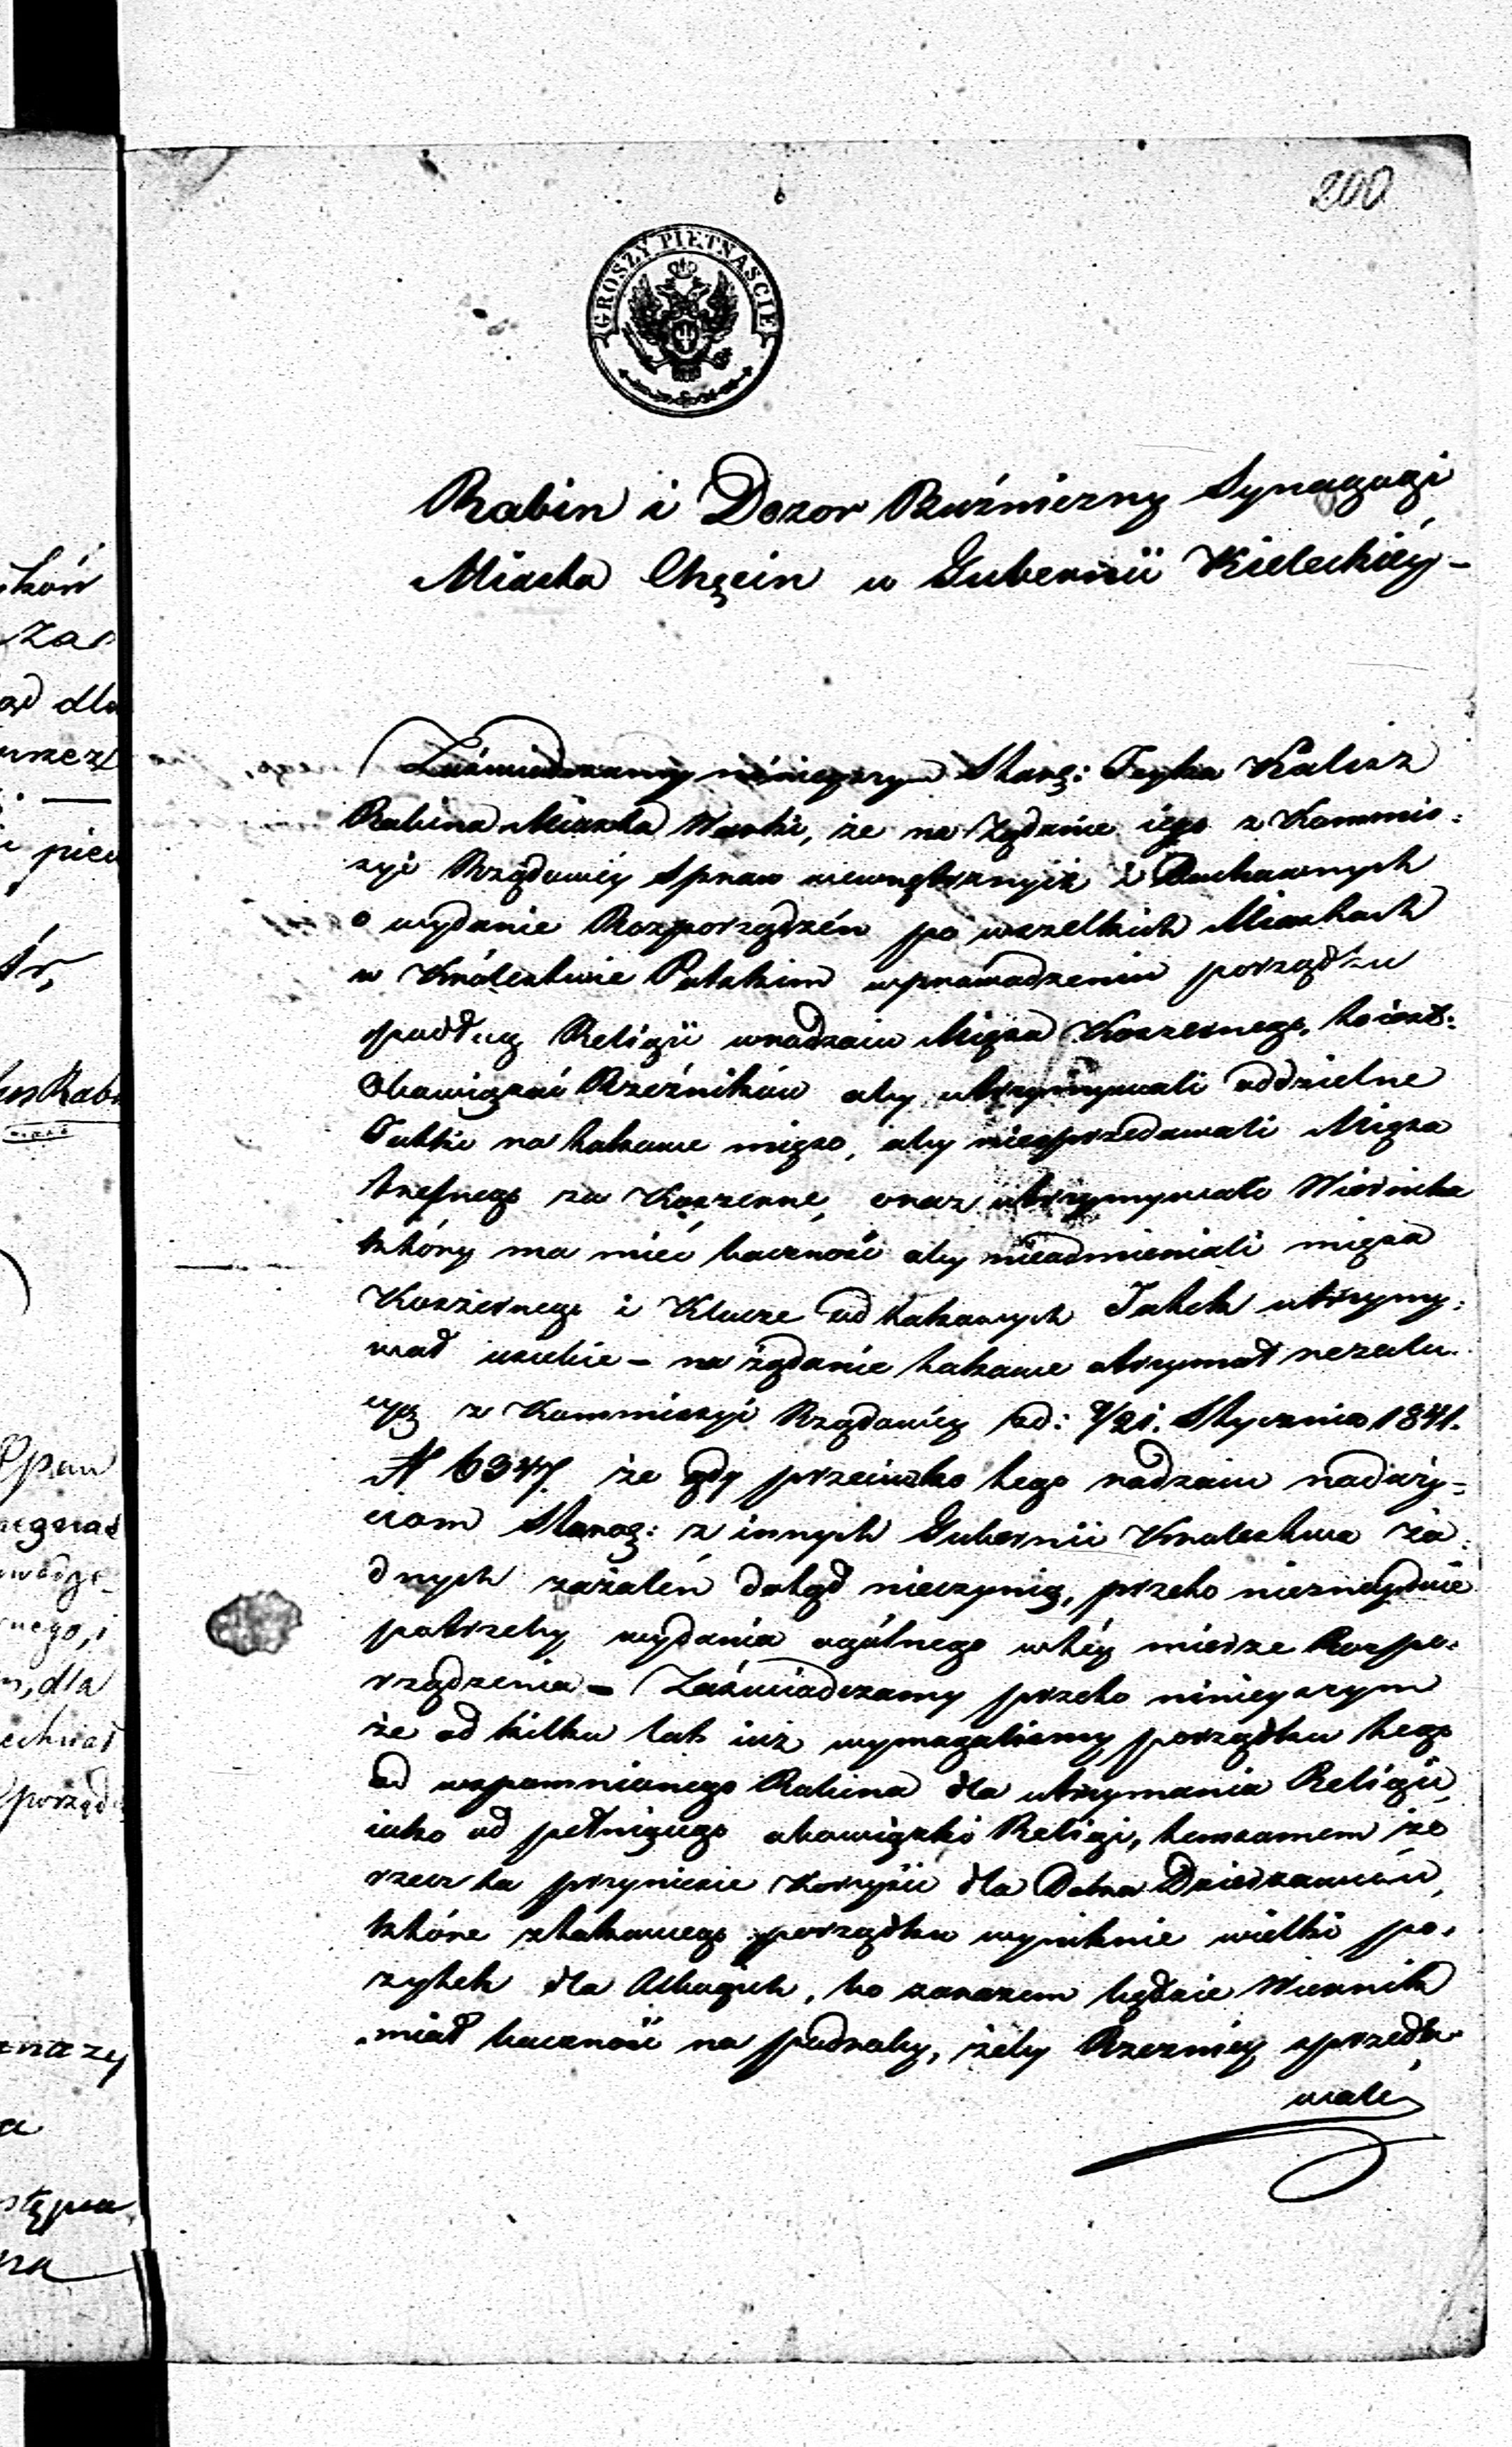 200
GROSZY PIĘTNAŚCIE
Rabin i Dozor Buźniczny Synagogi
Miasta Chęcin w Gubernii Kieleckiéy -
Zaświadczamy ninieyszym Staroz: Icyka Kalisz
Rabina Miasta Warki, że na żądanie iego z Kommis:
syi Rządowéy Spraw wewnętrznych i Duchownych
o wydanie Rozporządzén po wszelkich Miastach
w Królestwie Polskim wprowadzeniu porządku
podług Religii wrodzaiu Mięsa Koszernego, to iest:
Obowiązać Rzeźników aby utrzymywali oddzielne
Jatki na takowe mięso, aby niesprzedawali Mięsa
trefnego za Koszerne, oraz utrzymywali Wiernika
który ma mieć baczność aby nieodmieniali mięsa
Koszernego i Klucze od takowych Jatek utrzymy:
wał usiebie - na żądanie takowe otrzymał rezolu:
cyą z Kommissyi Rządowéy od: 9/21. Stycznia 1841.
N 6347. że gdy przeciwko tego rodzaiu naduży=
ciom Staroz: z innych Gubernii Królestwa ża:
dnych zażaleń dotąd nieczynią, przeto nieznayduie
potrzeby wydania ogólnego wtéy mierze Rozpo:
rządzenia - Zaświadczamy przeto ninieyszym
że od kilku lat iuż wymagaliśmy porządku tego
od wspomnionego Rabina dla utrzymania Religii,
iako od pełniącego obowiązki Religi, temsamem że
rzecz ta przyniesie Korzyści dla Dobra Dzierzawców,
które ztakowego porządku wyniknie wielki po:
żytek dla Ubogich, bo zarazem będzie Wiernik
miał baczność na podroby, żeby Rzeznicy sprzeda:
wali
ików
ąd dla
i pier
Rabi
Span
nego, i
, dla
porządk